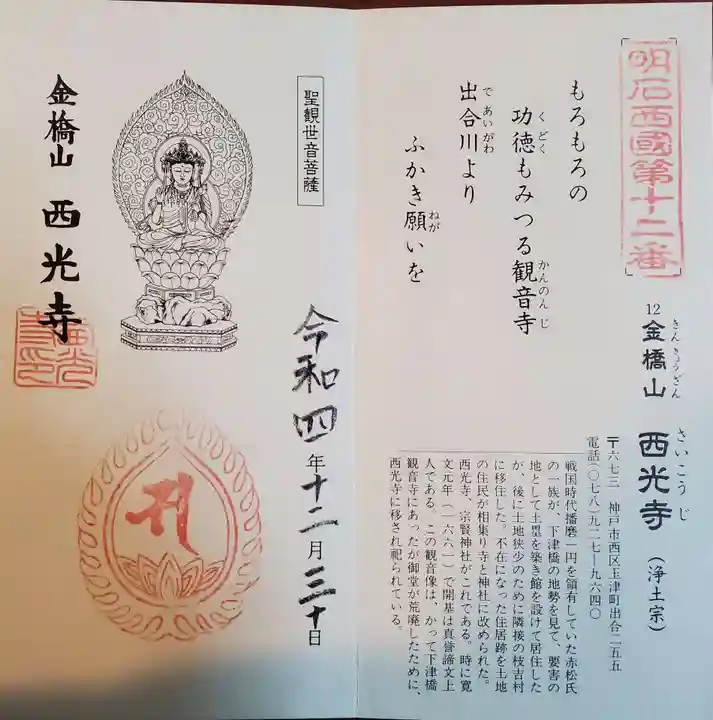 明石西國第十二番
12 金橋山 西光寺(浄土宗)
きんきょうざん さいこうじ
〒六七三 神戸市西区玉津町出合二五五
電話(〇七八)九二七―九六四〇
もろもろの
功徳もみつる観音寺
くどく かんのんじ
出合川より
であいがわ
ふかき願いを
ねが
戦国時代播磨一円を領有していた赤松氏
の一族が、下津橋の地勢を見て、要害の
地として土塁を築き館を設けて居住した
が、後に土地狭少のために隣接の枝吉村
に移住した。不在になった住居跡を土地
の住民が相集り寺と神社に改められた。
西光寺、宗賢神社がこれである。時に寛
文元年(一六六一)で開基は真誉諦文上
人である。この観音像は、かって下津橋
観音寺にあったが御堂が荒廃したために、
西光寺に移され祀られている。
聖観世音菩薩
令和四年十二月三十日
金橋山 西光寺